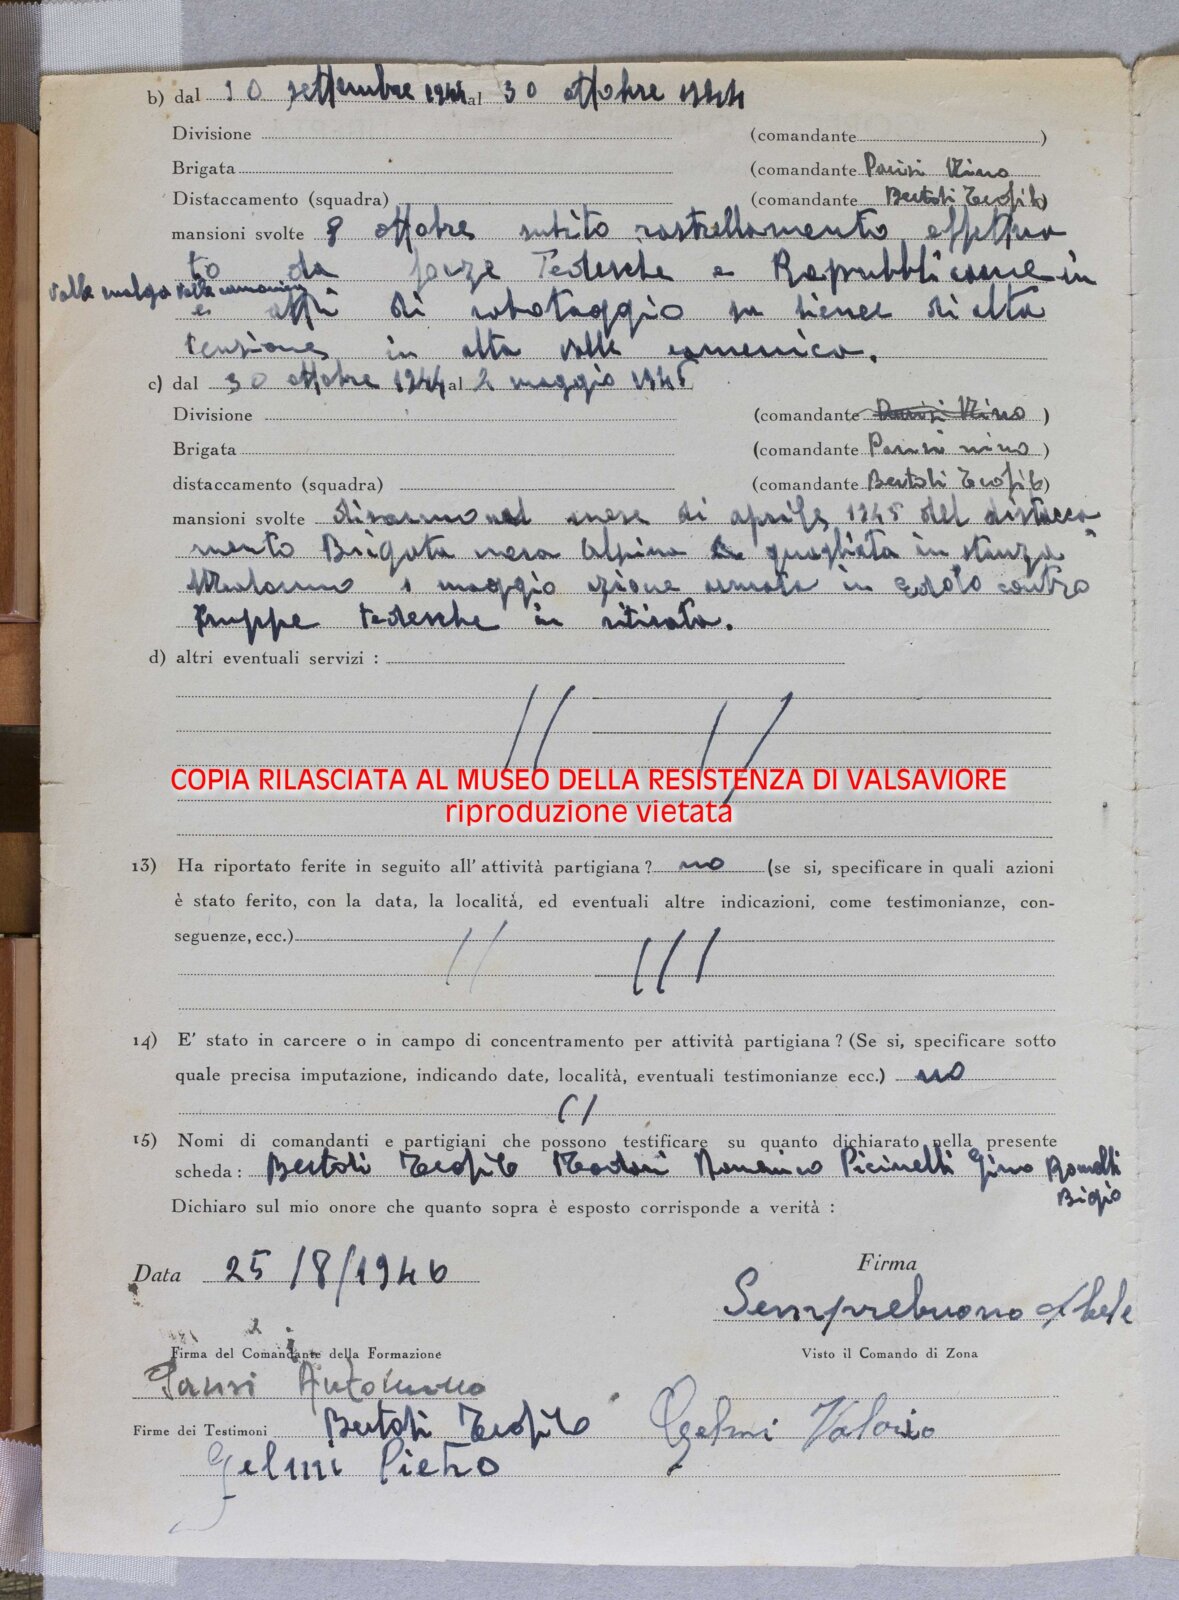 b) dal 10 settembre 1944 al 30 ottobre 1944
Divisione (comandante )
Brigata (comandante Parisi Nino
Distaccamento (squadra) (comandante Bertoli Teofilo)
mansioni svolte 8 ottobre subito rastrellamento effettua
to da forze Tedesche e Repubblicane in
valle malga valle camonica
e atti di sabotaggio su linee di alta
tensione in alta valle camonica.
c) dal 30 ottobre 1944 al 2 maggio 1945
Divisione (comandante Parisi Nino )
Brigata (comandante Parisi nino )
distaccamento (squadra) (comandante Bertoli Teofilo)
mansioni svolte disarmo nel mese di aprile 1945 del distacca
mento Brigata nera Alpina quagliata in stanza
Malonno 1 maggio azione armata in Edolo contro
truppe tedesche in ritirata.
d) altri eventuali servizi :
COPIA RILASCIATA AL MUSEO DELLA RESISTENZA DI VALSAVIORE
riproduzione vietata
13) Ha riportato ferite in seguito all'attività partigiana ? no (se si, specificare in quali azioni
è stato ferito, con la data, la località, ed eventuali altre indicazioni, come testimonianze, con-
seguenze, ecc.)
14) E' stato in carcere o in campo di concentramento per attività partigiana ? (Se si, specificare sotto
quale precisa imputazione, indicando date, località, eventuali testimonianze ecc.) no
15) Nomi di comandanti e partigiani che possono testificare su quanto dichiarato nella presente
scheda : Bertoli Teofilo Domenico Picinelli Gino Romelli
Bigio
Dichiaro sul mio onore che quanto sopra è esposto corrisponde a verità :
Data 25/8/1946
Firma
Semprebuono Abele
Firma del Comandante della Formazione
Visto il Comando di Zona
Parisi Antonino
Firme dei Testimoni Bertoli Teofilo
Gelmi Valerio
Gelmi Pietro